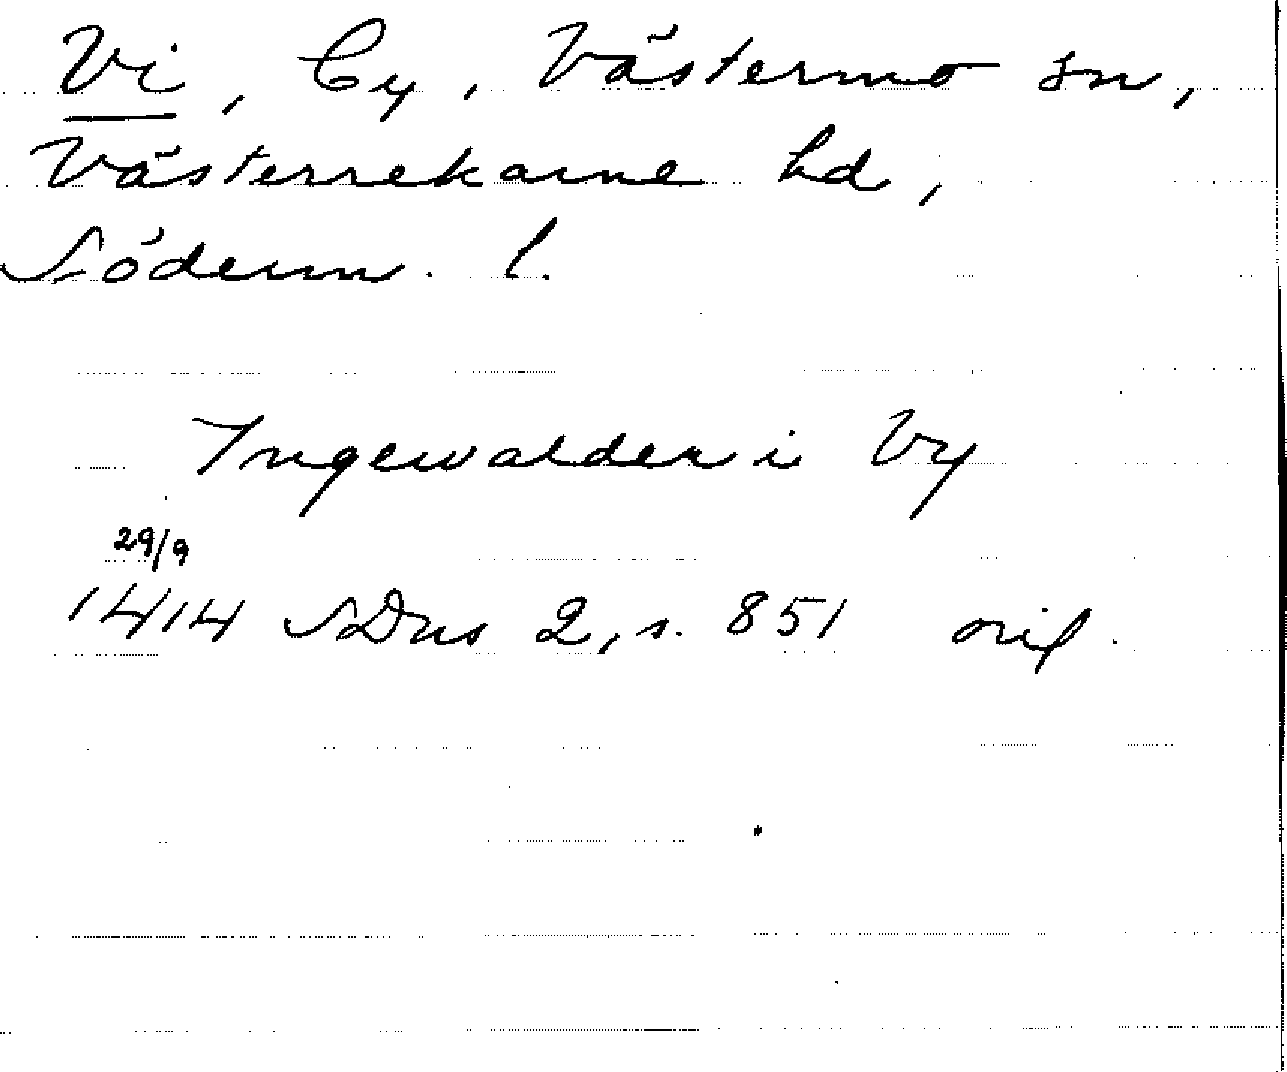 Vi, By, Västermo sn,
Västerrekarne hd,
Söderm. l.
Ingewalder i Vy
29/9
1414 SDns 2, s. 851 orig.